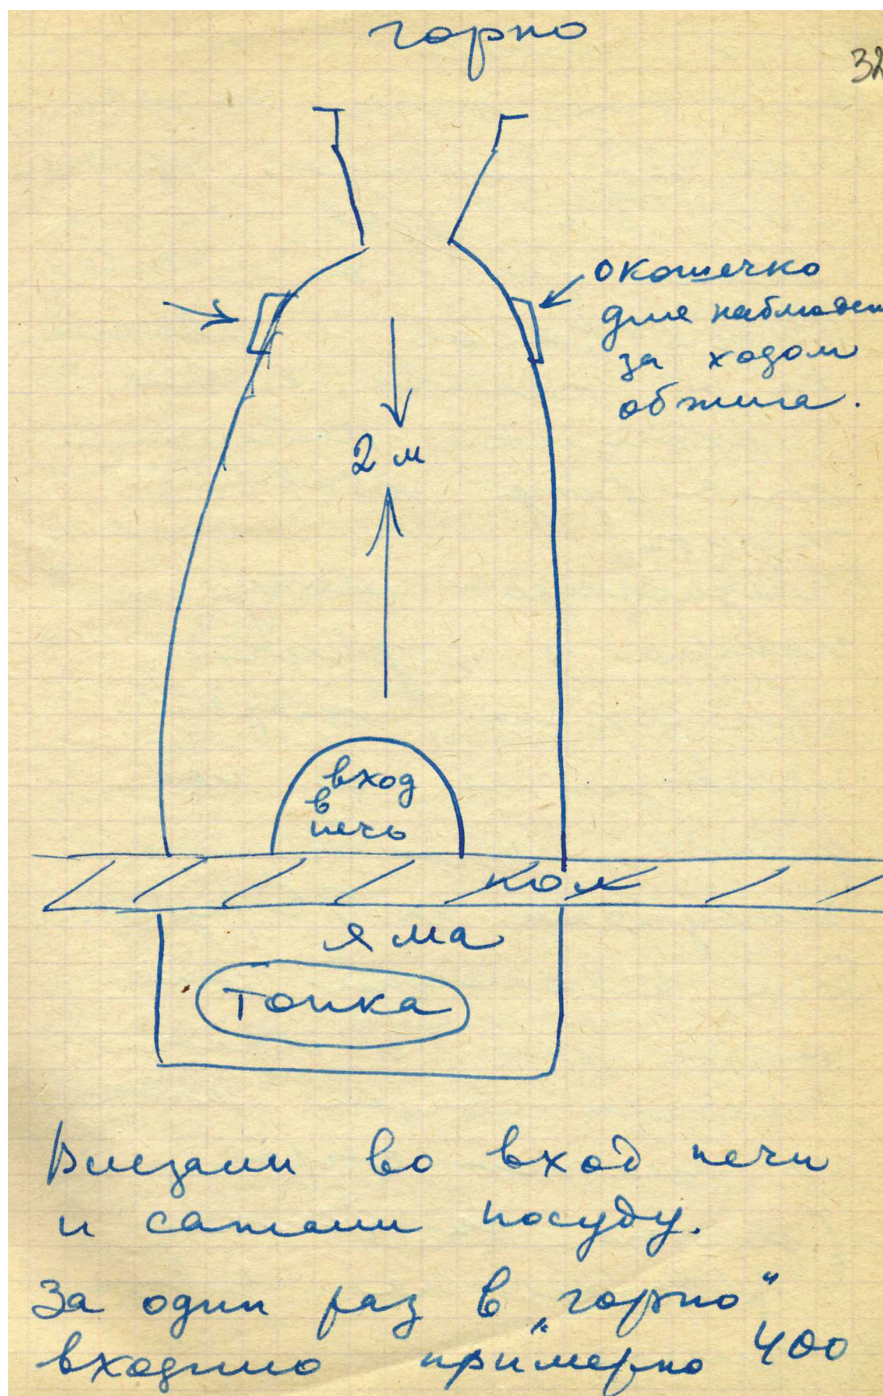 горно
32
окошечко
для наблюден
за ходом
обжига.
2 м
вход
в
печь
пол
яма
топка
Влезали во вход печи
и сажали посуду.
За один раз в „горно"
входило примерно 400